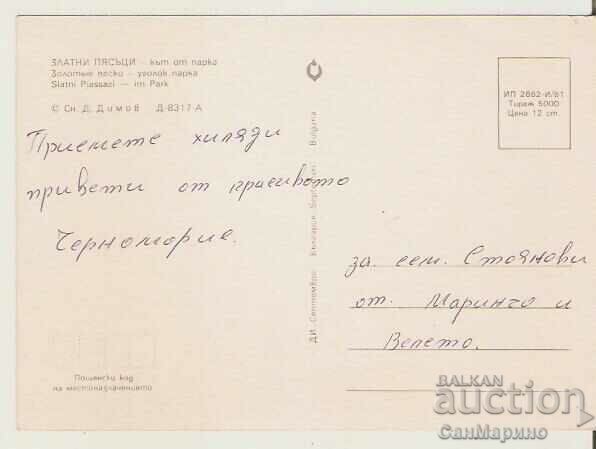 ЗЛАТНИ ПЯСЪЦИ — кът от парка
Золотые пески — уголок парка
Slatni Piassazi — im Park
© Сн. Д. Димов Д-8317-А
ИП 2862-И/81
Тираж 5000
Цена 12 ст.
Приемете хиляди
привети от красивото
Черномория.
ДИ „Септември" България Bulgaria
за сем. Стоянови
от Маринчо и
Велето.
Пощенски код
на местоназначението
BALKAN
auction
СанМарино